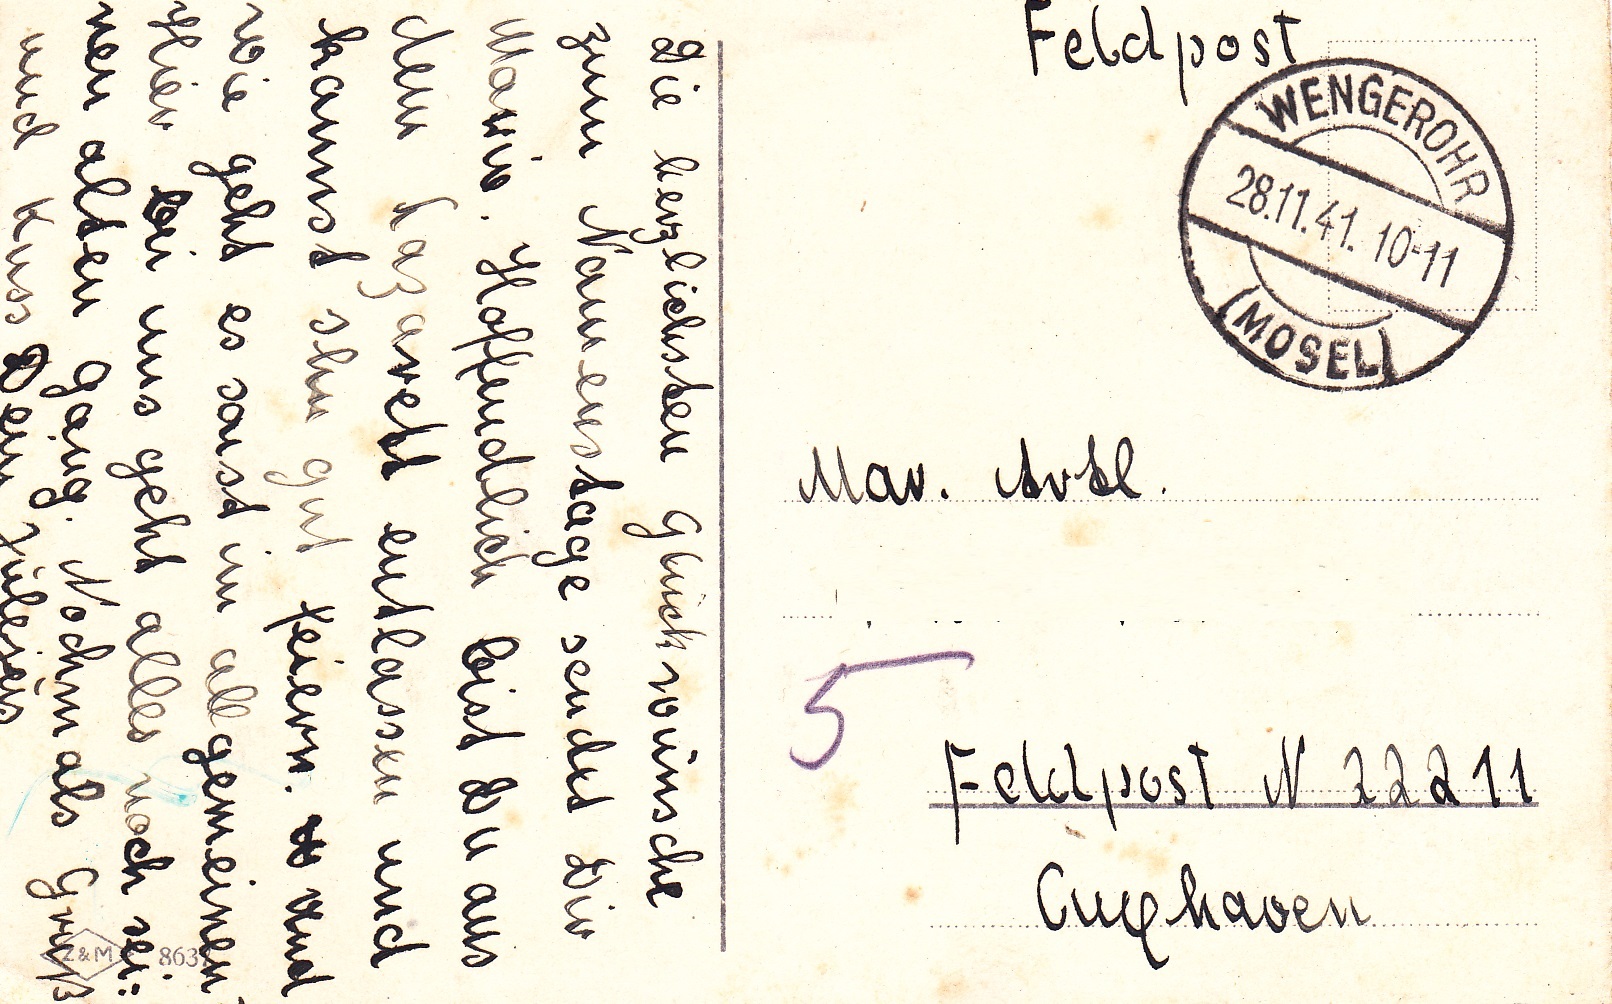 Die herzlichsten Glückwünsche
zum Namenstage sendet Dir
Maria. Hoffendlich bist Du aus
dem Lazarett entlassen und
kannst ihn gut feiern. und
wie geht es sonst im allgemeinen
Hier bei uns geht alles noch sei:
nen alten gang. Nochmals Gruß
und Kuss Dein
Feldpost
WENGEROHR
28.11.41. 10-11
(MOSEL)
Mar. Artl.
5
Feldpost N 22211
Cuxhaven
Z&M 8637